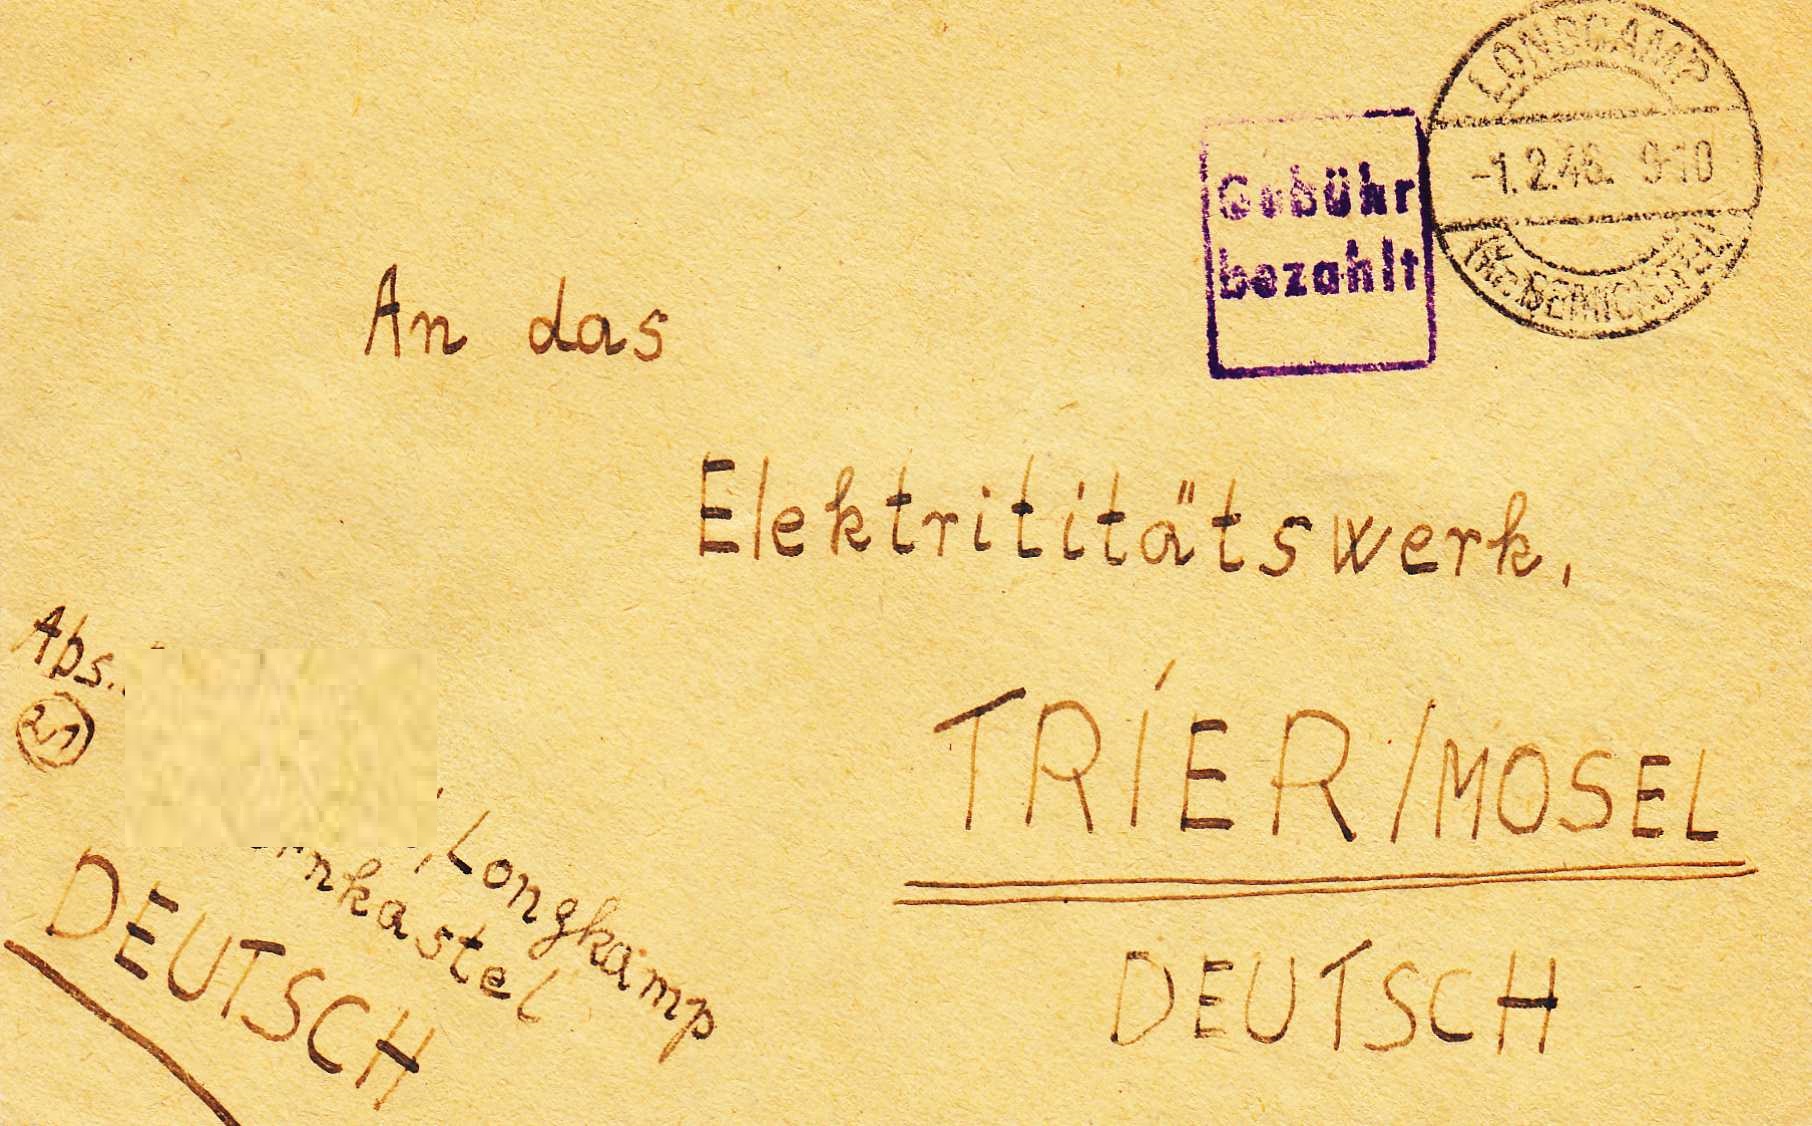 LONGCAMP
-1.2.46. 9-10
(Kr.
Gebühr
bezahlt
An das
Elektrititätswerk,
TRIER/MOSEL
DEUTSCH
Abs.:
/Longkamp
rnkastel
DEUTSCH